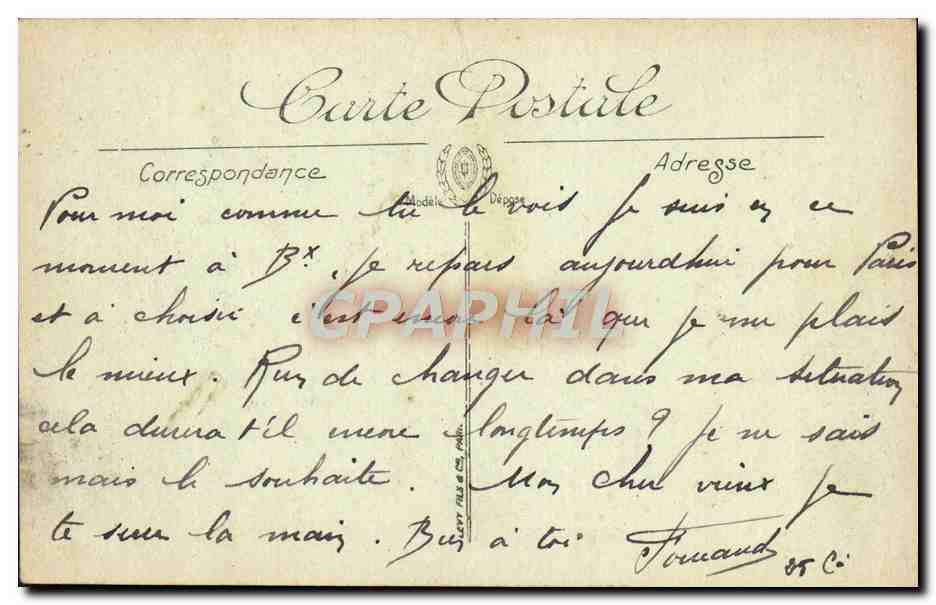 Carte Postale
Correspondance
Adresse
Modèle Déposé
Pour moi comme tu le vois je suis en ce
moment à Bx. Je repars aujourdhui pour Paris
et à choisir c'est encore là que je me plais
le mieux. Rien de changer dans ma situation
cela durera t'il encore longtemps ? Je ne sais
mais le souhaite. Mon cher vieux je
te serre la main. Bien à toi
Fernand
25 Cie
CPAPHIL
LEVY FILS & Cie, PARIS